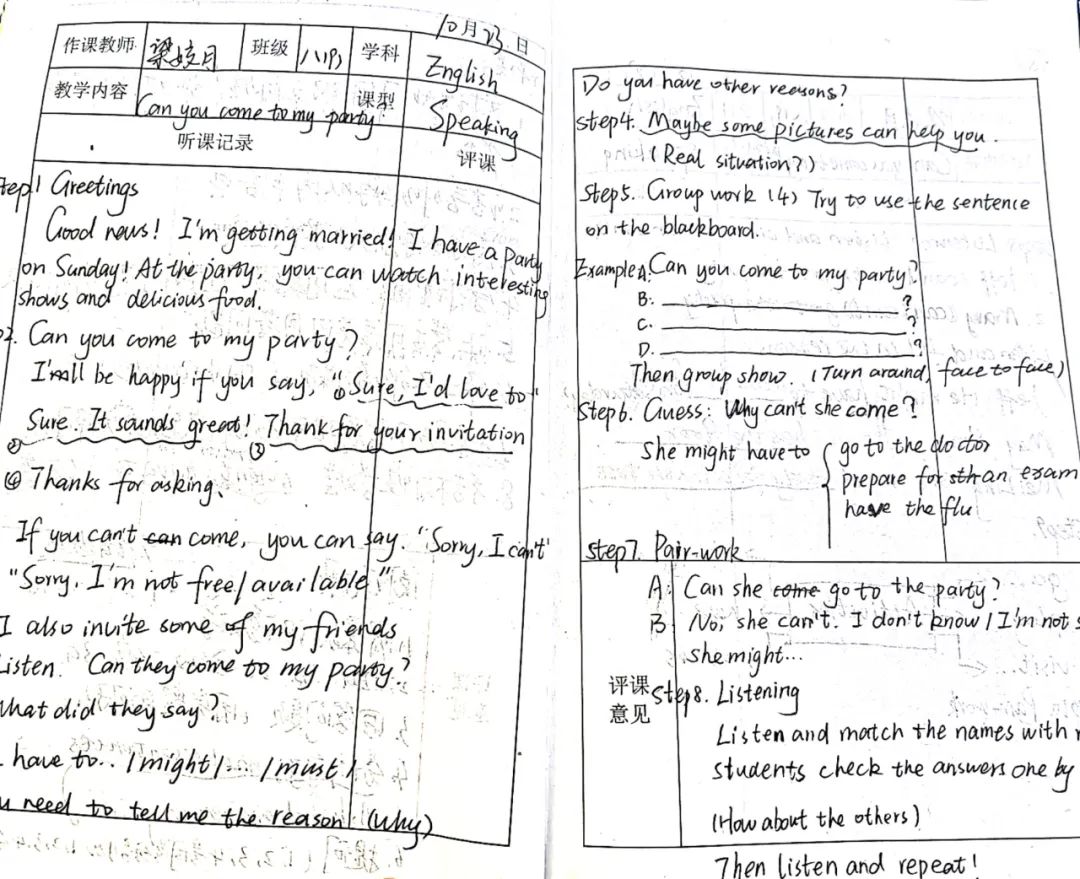 10月23日
作课教师 梁婷月 班级 八(9) 学科 English
教学内容 Can you come to my party 课型 Speaking
听课记录 评课
tep1 Greetings
Good news! I'm getting married! I have a party
on Sunday! At the party, you can watch interesting
shows and delicious food.
2. Can you come to my party?
I'll be happy if you say, "① Sure, I'd love to"
② Sure. It sounds great! ③ Thank for your invitation
④ Thanks for asking.
If you can't can come, you can say. "Sorry, I can't"
"Sorry, I'm not free/available."
I also invite some of my friends
Listen. Can they come to my party?
What did they say?
I have to.. / might /... / must /
u need to tell me the reason (why)
Do you have other reasons?
step4. Maybe some pictures can help you.
(Real situation?)
Step5. Group work (4) Try to use the sentence
on the blackboard.
Example A: Can you come to my party?
B: ?
C. ?
D. ?
Then group show. (Turn around, face to face)
Step6. Guess: Why can't she come?
She might have to go to the doctor
prepare for an exam
have the flu
step7. Pair-work
A: Can she come go to the party?
B No, she can't. I don't know / I'm not s
she might...
评课意见
Step8. Listening
Listen and match the names with r
students check the answers one by
(How about the others)
Then listen and repeat!